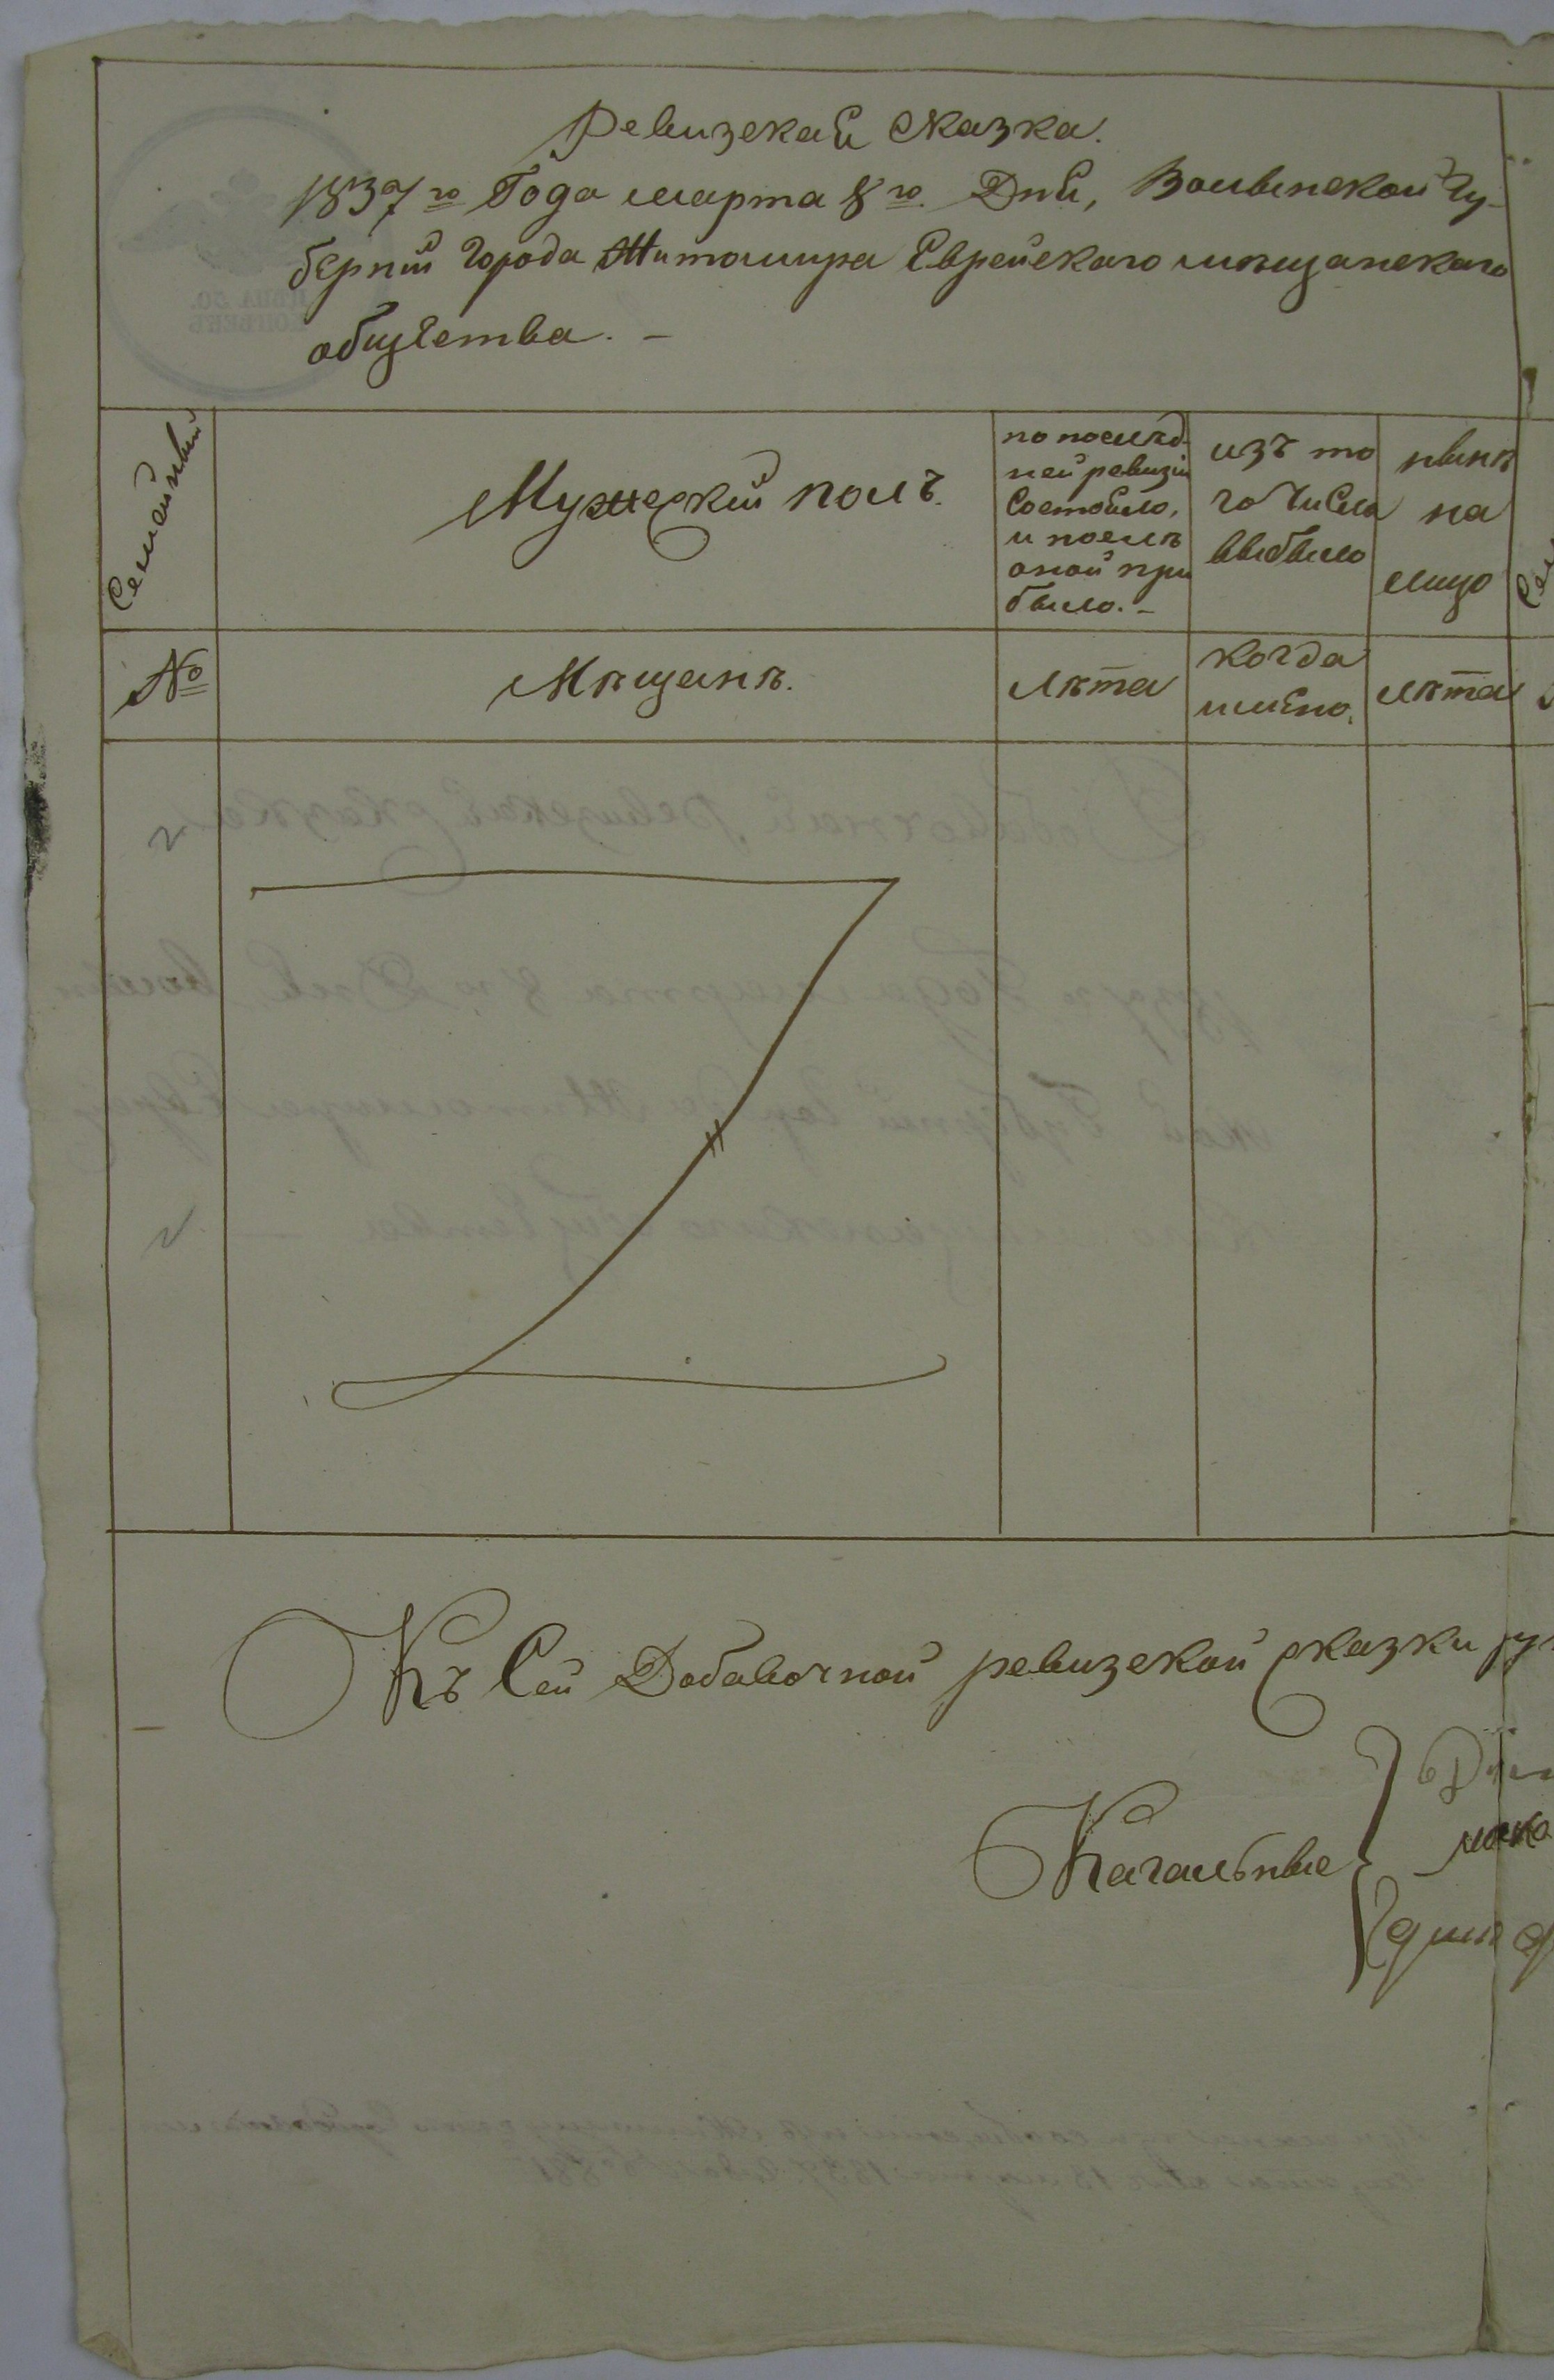 Ревизская Сказка.
1837го Года марта 8го Дня, Волынской Гу-
берніи Города Житомира Еврейскаго мѣщанскаго
общества. –
Семейный
Мужескій полъ.
по послѣд-
ней ревизіи
Состояло,
и послѣ
оной при
было. –
изъ то
го Числа
выбыло
нынѣ
на
лицо
№
Мѣщанѣ.
лѣта
когда
имѣно.
лѣта
Къ Сей Добавочной ревизской Сказки
Кагальные